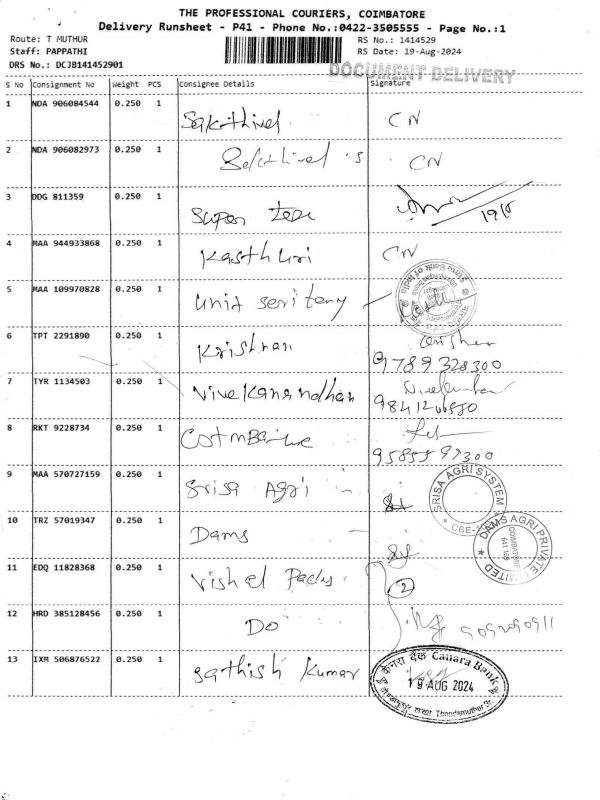 THE PROFESSIONAL COURIERS, COIMBATORE
Delivery Runsheet - P41 - Phone No.:0422-3505555 - Page No.:1
Route: T MUTHUR RS No.: 1414529
Staff: PAPPATHI RS Date: 19-Aug-2024
DRS No.: DCJB141452901
DOCUMENT DELIVERY
S No Consignment No Weight PCS Consignee Details Signature
1 NDA 906084544 0.250 1 Sakthivel CN
2 NDA 906082973 0.250 1 Sakthivel s CN
3 DDG 811359 0.250 1 super 19/8
4 MAA 944933868 0.250 1 Kasthuri CN
5 MAA 109970828 0.250 1 unit seritery
State Bank of India
6 TPT 2291890 0.250 1 Krishnan
9789328300
7 TYR 1134503 0.250 1 Vivekanandhan
8 RKT 9228734 0.250 1
9 MAA 570727159 0.250 1 Srisa Agri
SRISA AGRI SYSTEM
CBE
10 TRZ 57019347 0.250 1 Dams
DAMS AGRI PRIVATE LIMITED
COIMBATORE
641 109
11 EDQ 11828368 0.250 1 2
12 HRD 385128456 0.250 1 Do
13 IXM 506876522 0.250 1 Sathish Kumar
केनरा बैंक Canara Bank
19 AUG 2024
शाखा Thondamuthur Br.